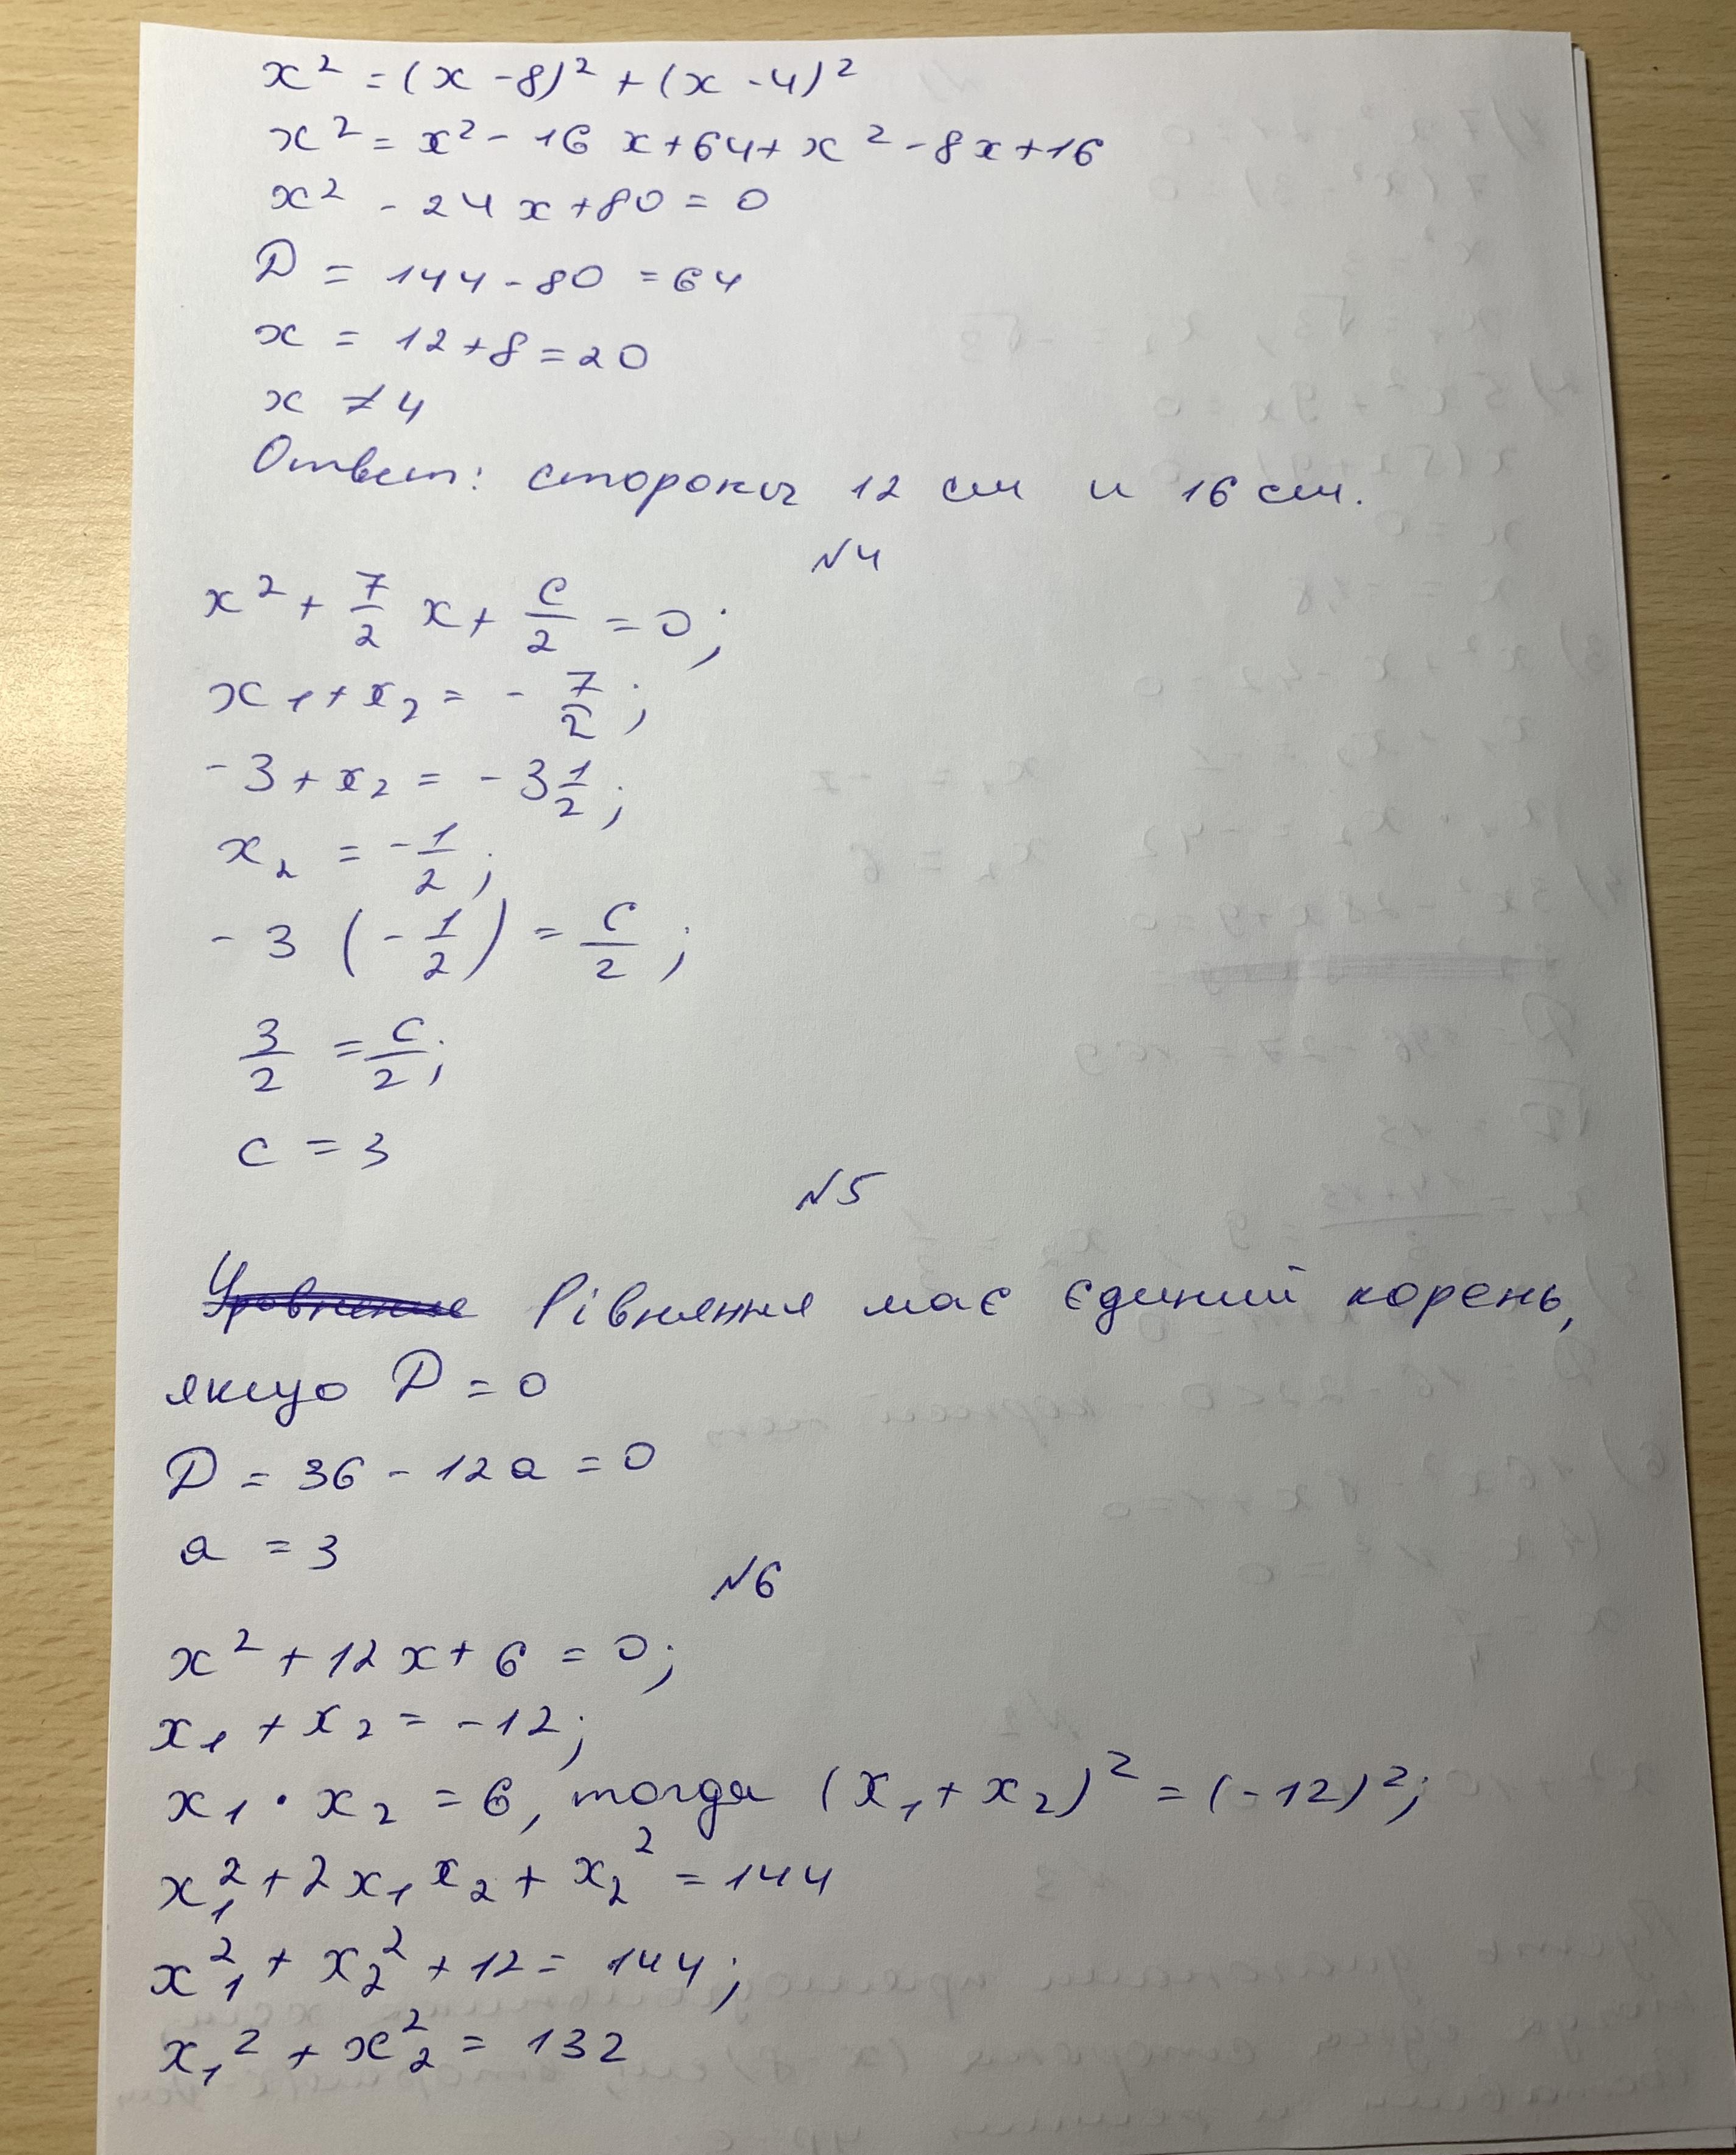 x² = (x - 8)² + (x - 4)²
x² = x² - 16x + 64 + x² - 8x + 16
x² - 24x + 80 = 0
D = 144 - 80 = 64
x = 12 + 8 = 20
x ≠ 4
Ответ: стороны 12 см и 16 см.
N4
x² + 7/2 x + c/2 = 0;
x₁ + x₂ = - 7/2;
-3 + x₂ = -3 1/2;
x₂ = - 1/2;
-3 (- 1/2) = c/2;
3/2 = c/2;
c = 3
N5
Уровнение Рівняння має єдиний корень,
якщо D = 0
D = 36 - 12a = 0
a = 3
N6
x² + 12x + 6 = 0;
x₁ + x₂ = -12;
x₁ · x₂ = 6, тогда (x₁ + x₂)² = (-12)²;
x₁² + 2x₁x₂ + x₂² = 144
x₁² + x₂² + 12 = 144;
x₁² + x₂² = 132